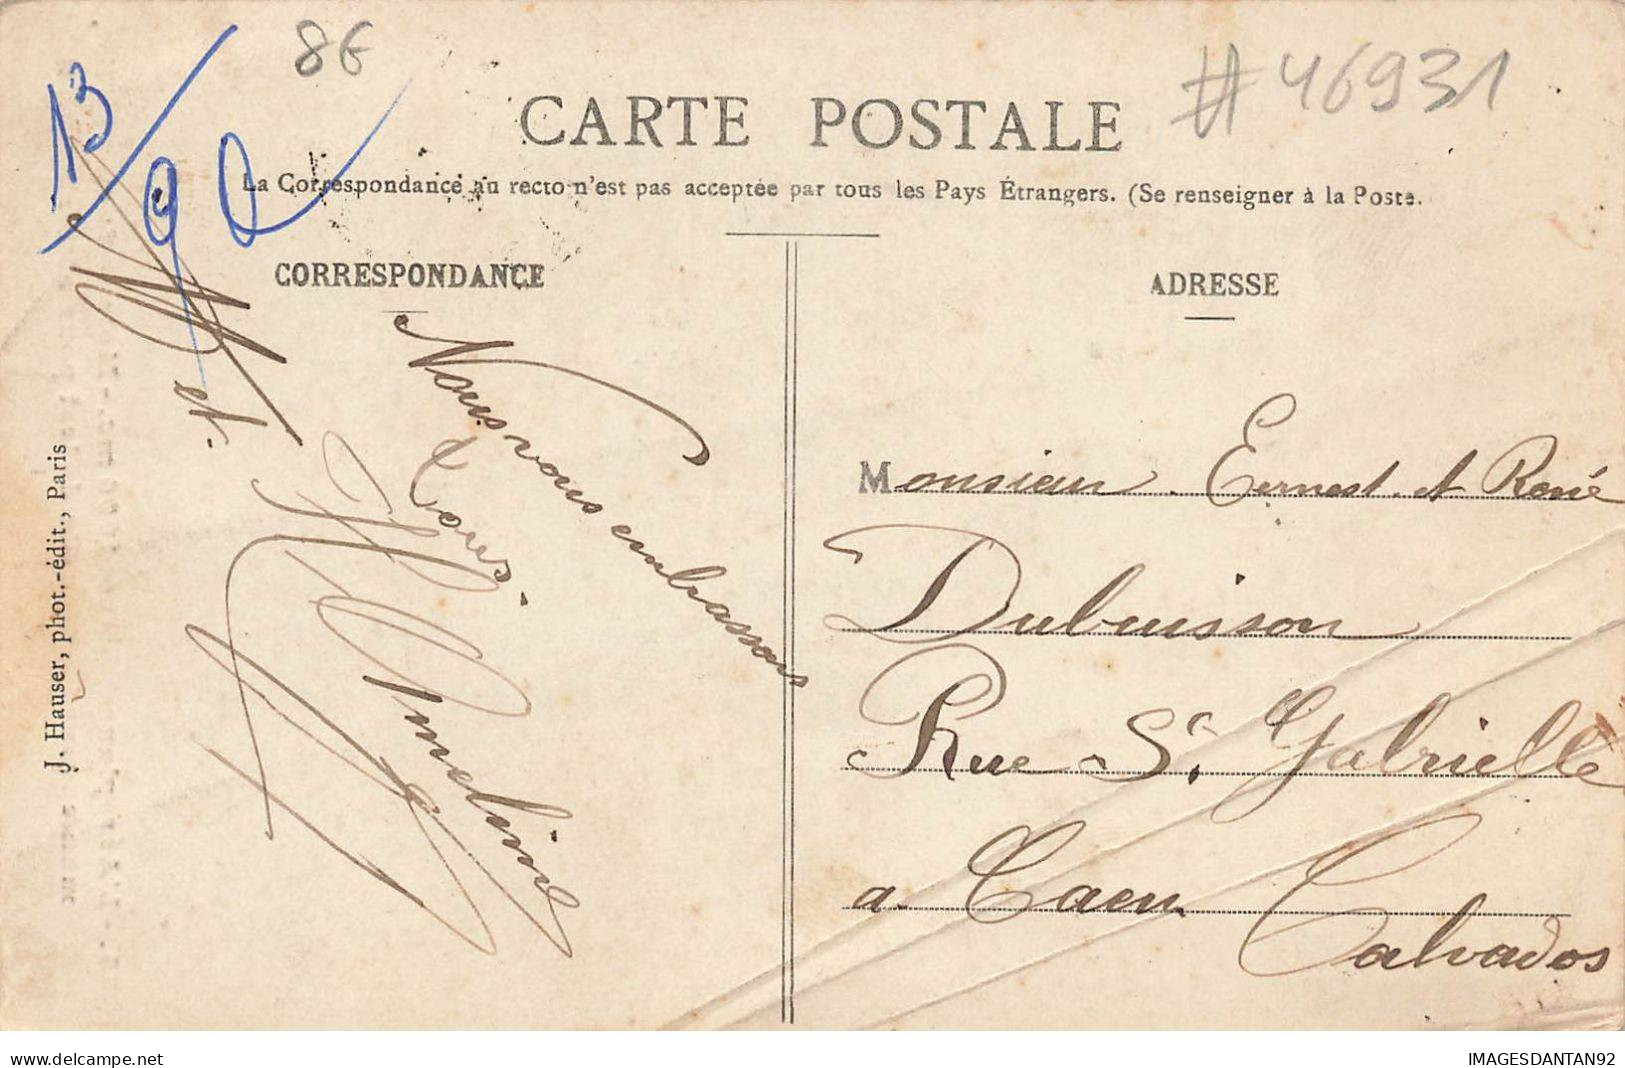 8€
# 46931
13/
92
CARTE POSTALE
La Correspondance au recto n'est pas acceptée par tous les Pays Étrangers. (Se renseigner à la Poste.
CORRESPONDANCE
Nous vous embrassons
Tous.
et
Ameline
ADRESSE
Monsieur Ernest et René
Dubuisson
Rue St Gabrielle
a Caen
Calvados
J. Hauser, phot.-édit., Paris
www.delcampe.net
IMAGESDANTAN92